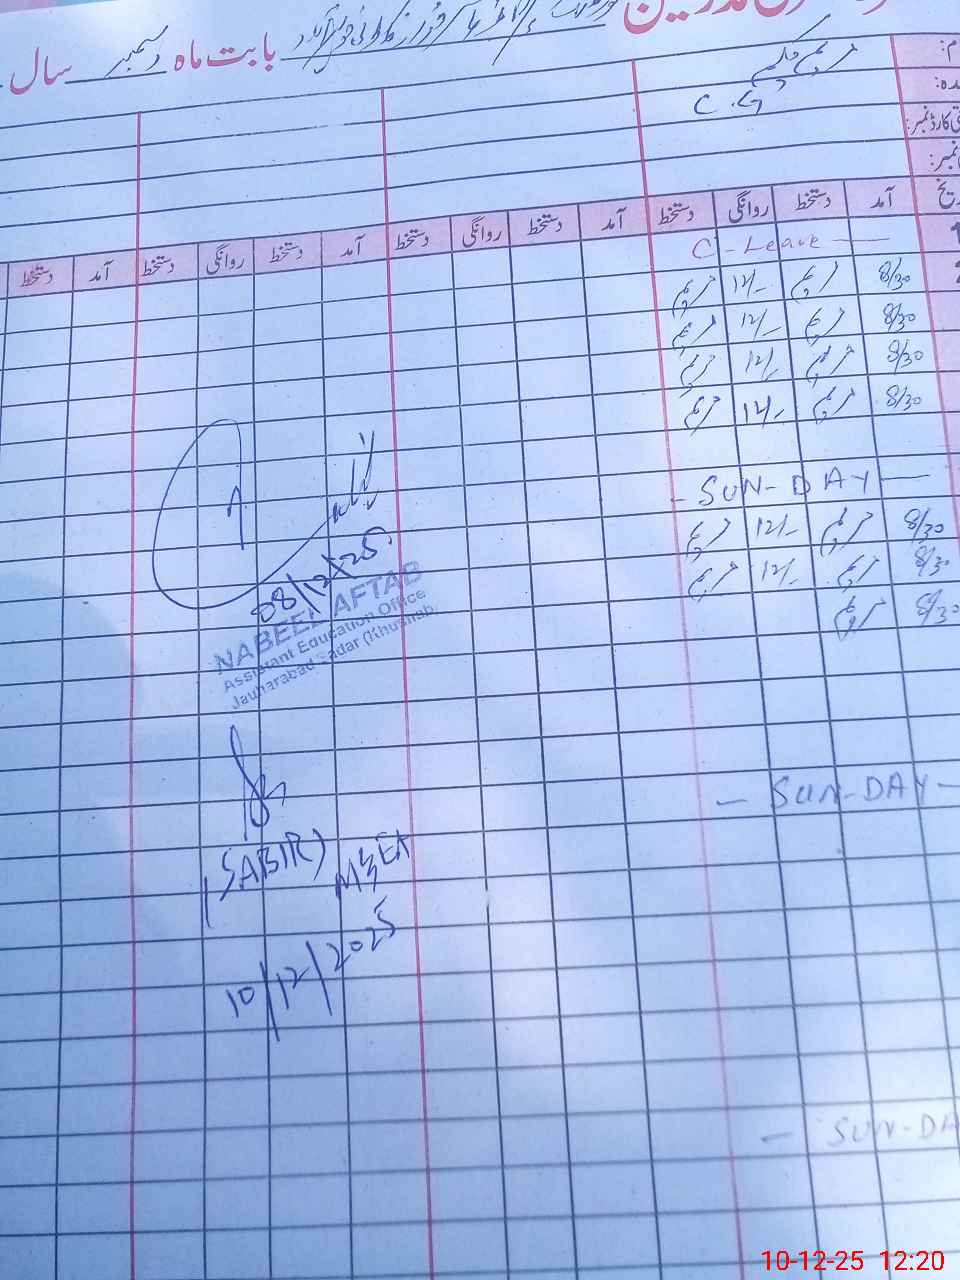 بابت ماہ دسمبر سال
مریم
C.
آمد دستخط روانگی دستخط آمد دستخط روانگی دستخط آمد دستخط روانگی دستخط آمد دستخط
C - Leave
8/30 مریم 12/- مریم
8/30 مریم 12/- مریم
8/30 مریم 12/- مریم
8/30 مریم 12/- مریم
- SUN-DAY -
8/30 مریم 12/- مریم
8/30 مریم 12/- مریم
8/30 مریم
08/12/25
NABEEL AFTAB
Assistant Education Office
Jauharabad Sadar (Khushab)
- SUN-DAY -
(SABIR) M&EA
10/12/2025
- SUN-DA
10-12-25 12:20